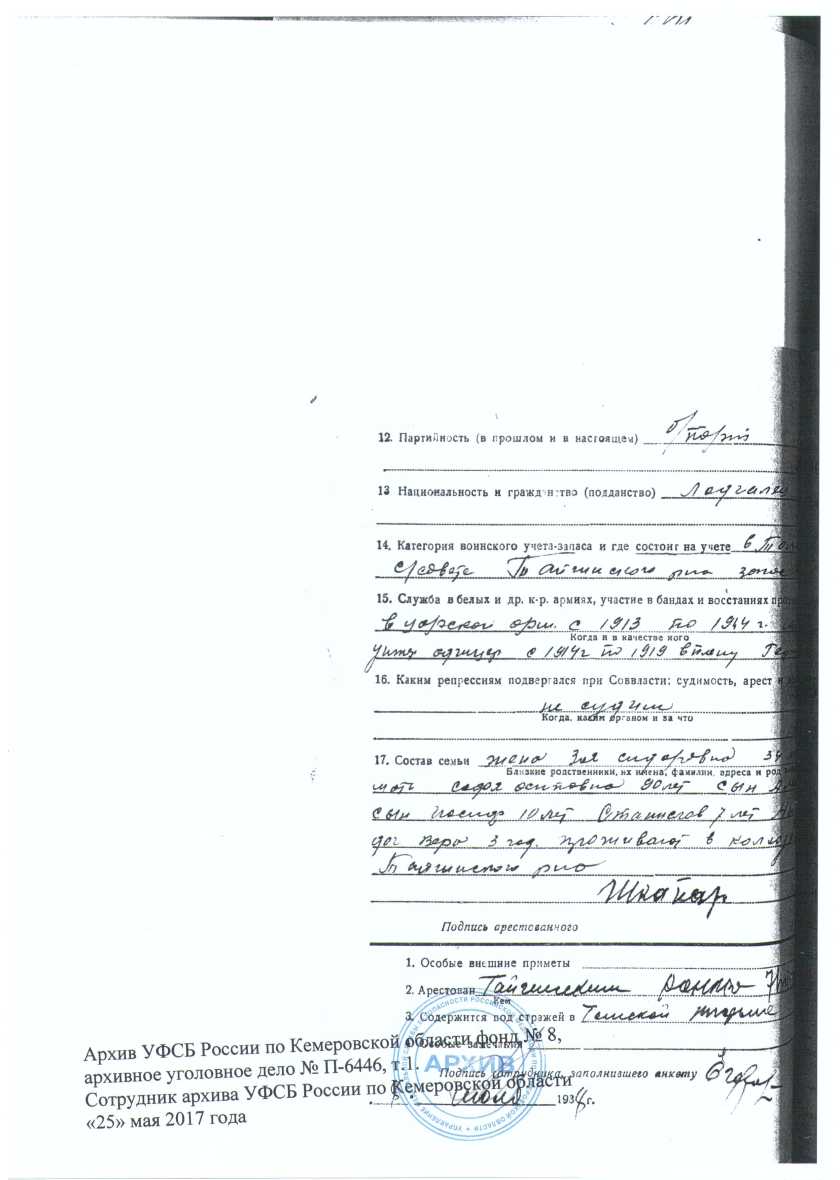 12. Партийность (в прошлом и в настоящем) б/парт
13 Национальность и гражданство (подданство)
14. Категория воинского учета-запаса и где состоит на учете в
с/совете Тайгинского рна запас
15. Служба в белых и др. к-р. армиях, участие в бандах и восстаниях
в царской арм. с 1913 по 1914 г.
Когда и в качестве кого
унтер офицер с 1914г по 1919 в плену
16. Каким репрессиям подвергался при Соввласти: судимость, арест
не судим
Когда, каким органом и за что
17. Состав семьи жена Зоя сидоровна 34
Близкие родственники, их имена, фамилии, адреса и род
мать софья осиповна 90 лет сын
сын Иосиф 10 лет Станислав 7 лет
доч Вера 3 год. проживают в
Тайгинского рна
Подпись арестованного
1. Особые внешние приметы
2. Арестован Тайгинским
Кем
3. Содержится под стражей в Томской тюрьме
4. Особые замечания
Архив УФСБ России по Кемеровской области фонд № 8,
архивное уголовное дело № П-6446, т.1.
АРХИВ
Подпись сотрудника, заполнившего анкету
Сотрудник архива УФСБ России по Кемеровской области
июля 1938 г.
«25» мая 2017 года